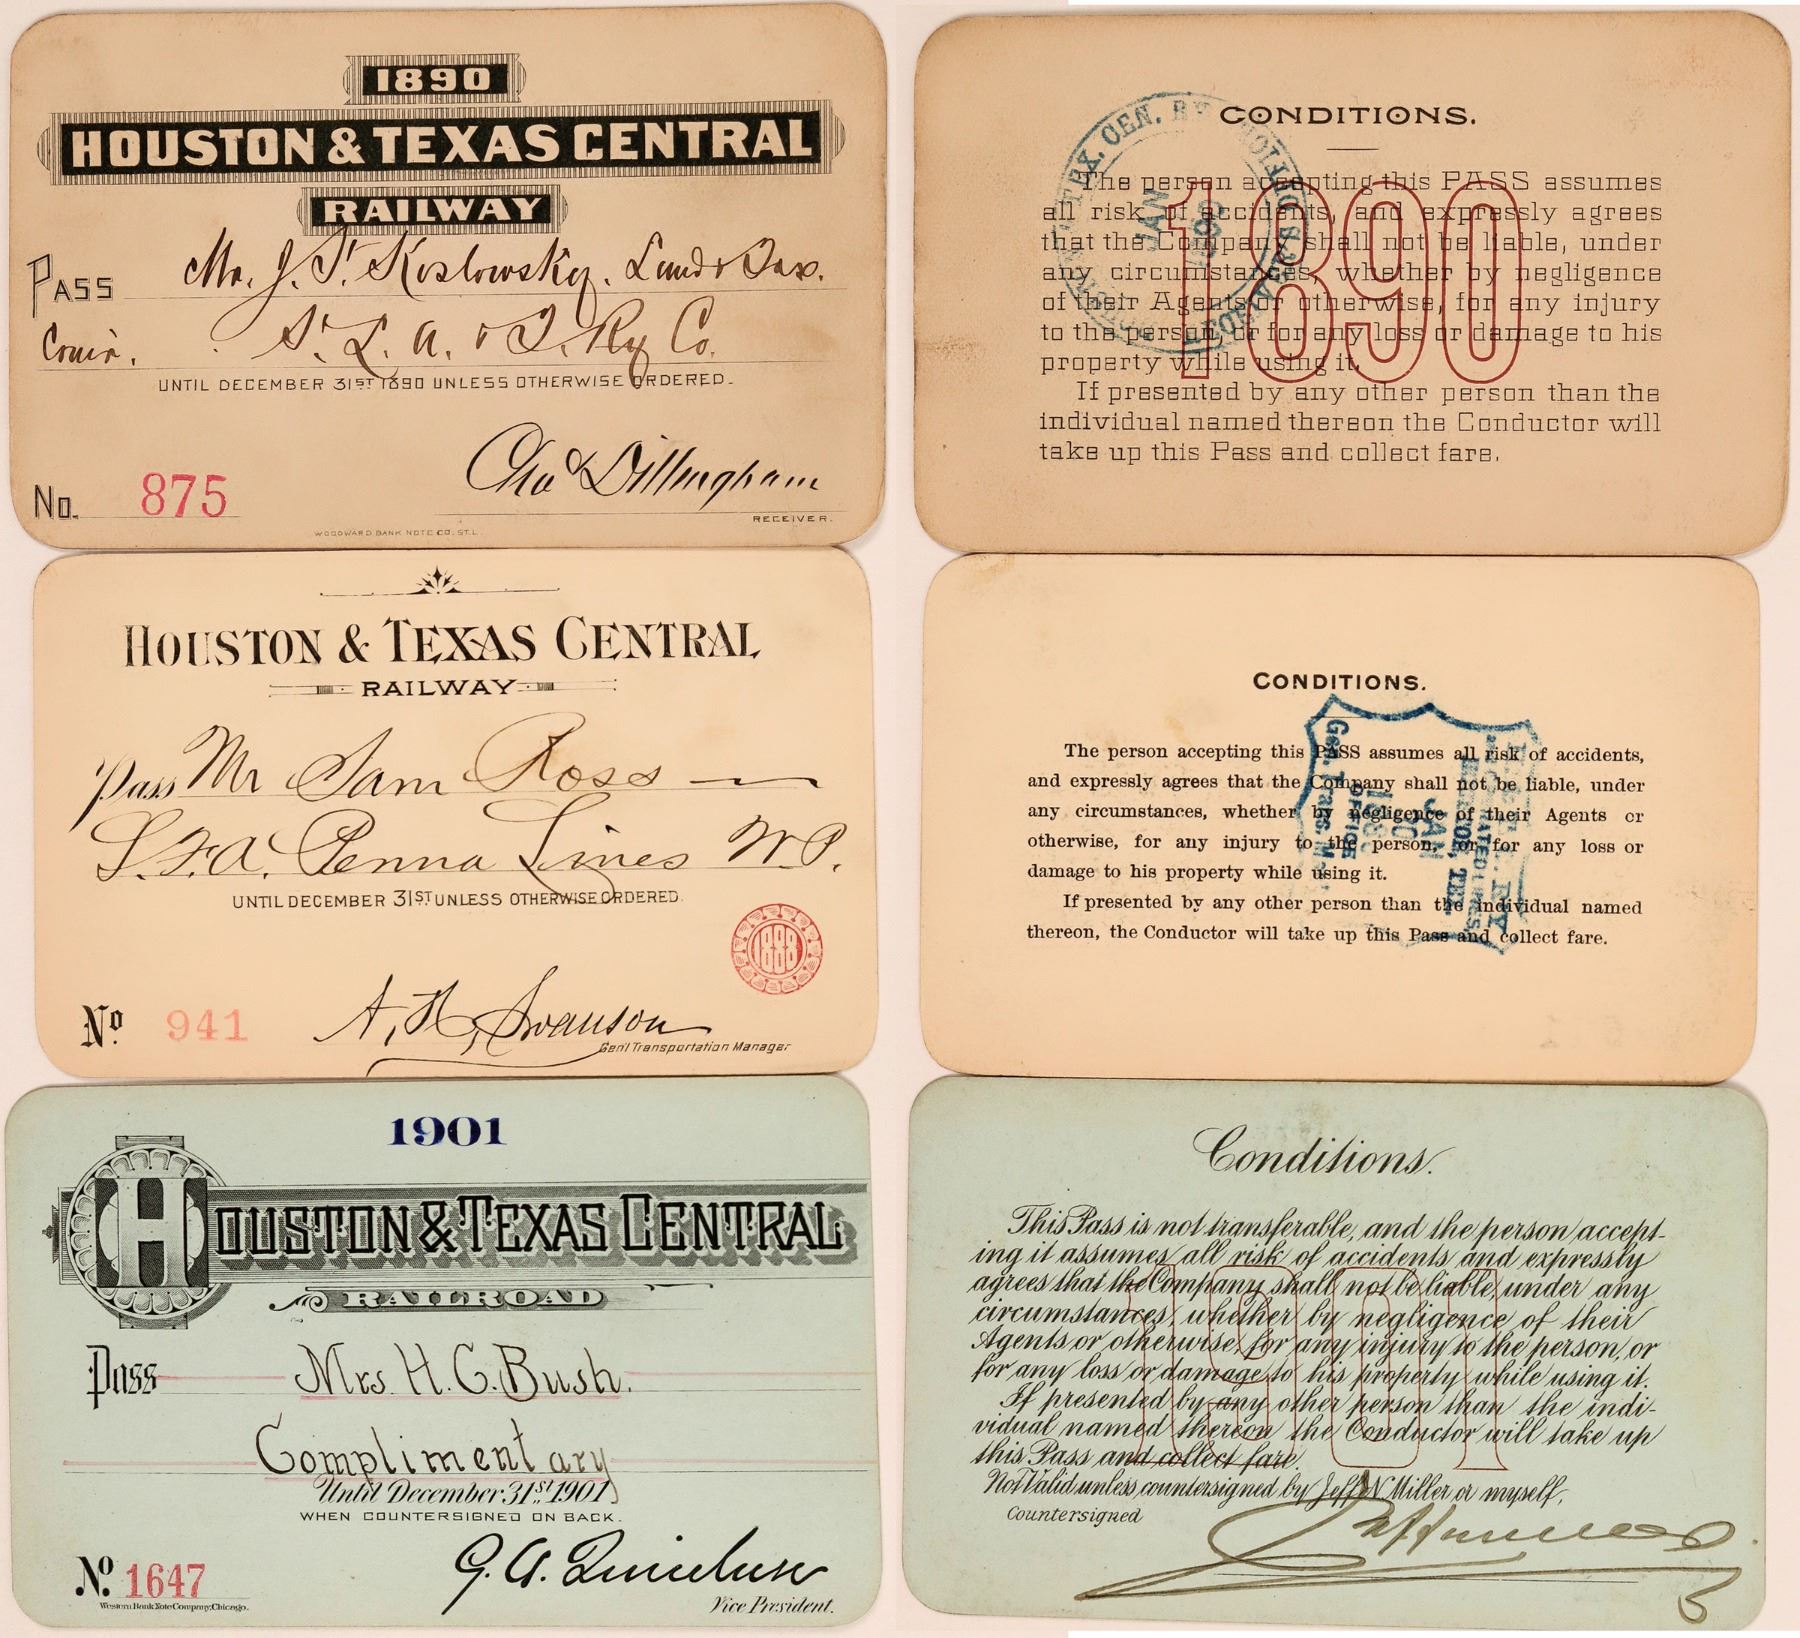 1890
HOUSTON & TEXAS CENTRAL
RAILWAY
PASS Mr. J. T. Koslowsky. Land & Tax.
Com'r. St. L. A. & T. Ry Co.
UNTIL DECEMBER 31ST 1890 UNLESS OTHERWISE ORDERED.
Chas Dillingham
No. 875
RECEIVER.
WOODWARD BANK NOTE CO. ST. L.
CONDITIONS.
The person accepting this PASS assumes
all risk of accidents, and expressly agrees
that the Company shall not be liable, under
any circumstances, whether by negligence
of their Agents or otherwise, for any injury
to the person, or for any loss or damage to his
property while using it.
If presented by any other person than the
individual named thereon the Conductor will
take up this Pass and collect fare.
1890
TEX. CEN. RY
JAN
1890
HOUSTON & TEXAS CENTRAL
RAILWAY
Pass Mr Sam Ross
S.F.A. Penna Lines W.P.
UNTIL DECEMBER 31ST UNLESS OTHERWISE ORDERED.
1888
No. 941
A. H. Swanson
Gen'l Transportation Manager
CONDITIONS.
The person accepting this PASS assumes all risk of accidents,
and expressly agrees that the Company shall not be liable, under
any circumstances, whether by negligence of their Agents or
otherwise, for any injury to the person, or for any loss or
damage to his property while using it.
If presented by any other person than the individual named
thereon, the Conductor will take up this Pass and collect fare.
JAN
OFFICE
1901
HOUSTON & TEXAS CENTRAL
RAILROAD
Pass Mrs. H. G. Bush.
Complimentary
Until December 31st 1901
WHEN COUNTERSIGNED ON BACK.
No. 1647
Western Bank Note Company, Chicago.
Vice President.
Conditions.
This Pass is not transferable, and the person accept-
ing it assumes all risk of accidents and expressly
agrees that the Company shall not be liable, under any
circumstances, whether by negligence of their
Agents or otherwise, for any injury to the person, or
for any loss or damage to his property while using it.
If presented by any other person than the indi-
vidual named thereon the Conductor will take up
this Pass and collect fare.
Not Valid unless countersigned by Jeff N Miller or myself.
Countersigned
1901